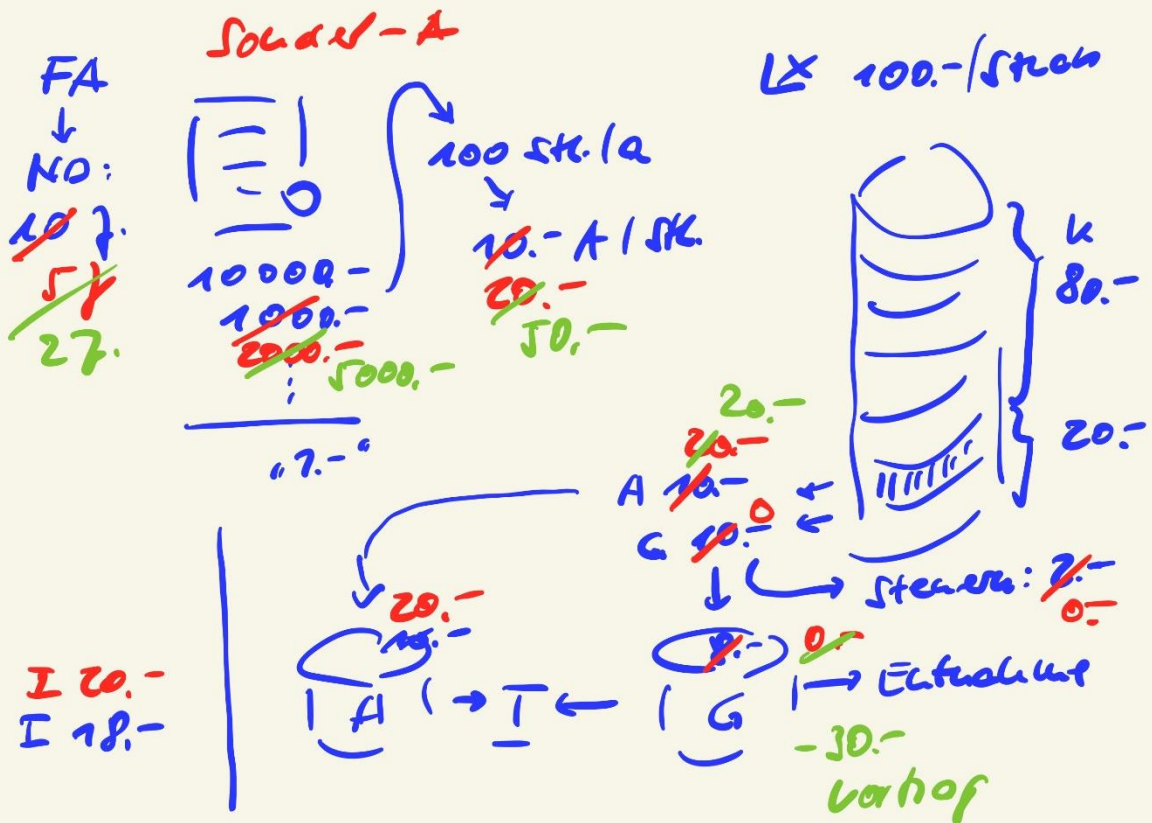 Sonder-A
FA
NO:
10 J.
5 J
2 J.
10000.-
1000.-
2000.-
5000.-
"1.-"
100 Stk./a
10.- A / Stk.
20.-
50.-
100.-/Stück
K
80.-
20.-
20.-
20.-
A 10.-
G 10.- 0
Steuern: 2.-
0.-
20.-
10.-
8.-
0.-
A
I
G
Entnahme
-30.-
Vortrag
I 20.-
I 18.-